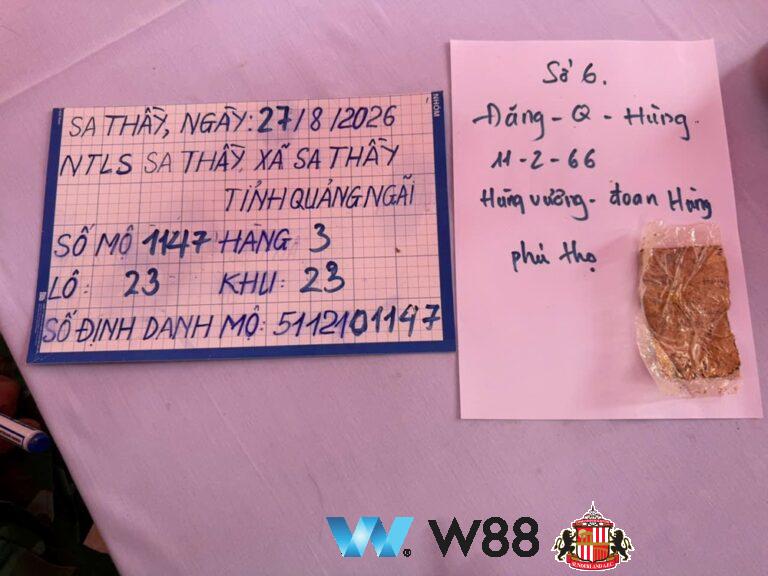 SA THẦY, NGÀY: 27/8/2026
NTLS SA THẦY, XÃ SA THẦY
TỈNH QUẢNG NGÃI
SỐ MỘ 1147 HÀNG 3
LÔ: 23 KHU: 23
SỐ ĐỊNH DANH MỘ: 5112101147
NHÓM
Số 6.
Đăng - Q - Hùng
11-2-66
Hùng vương - đoan Hùng
phú thọ
W® W88
SUNDERLAND A.F.C.